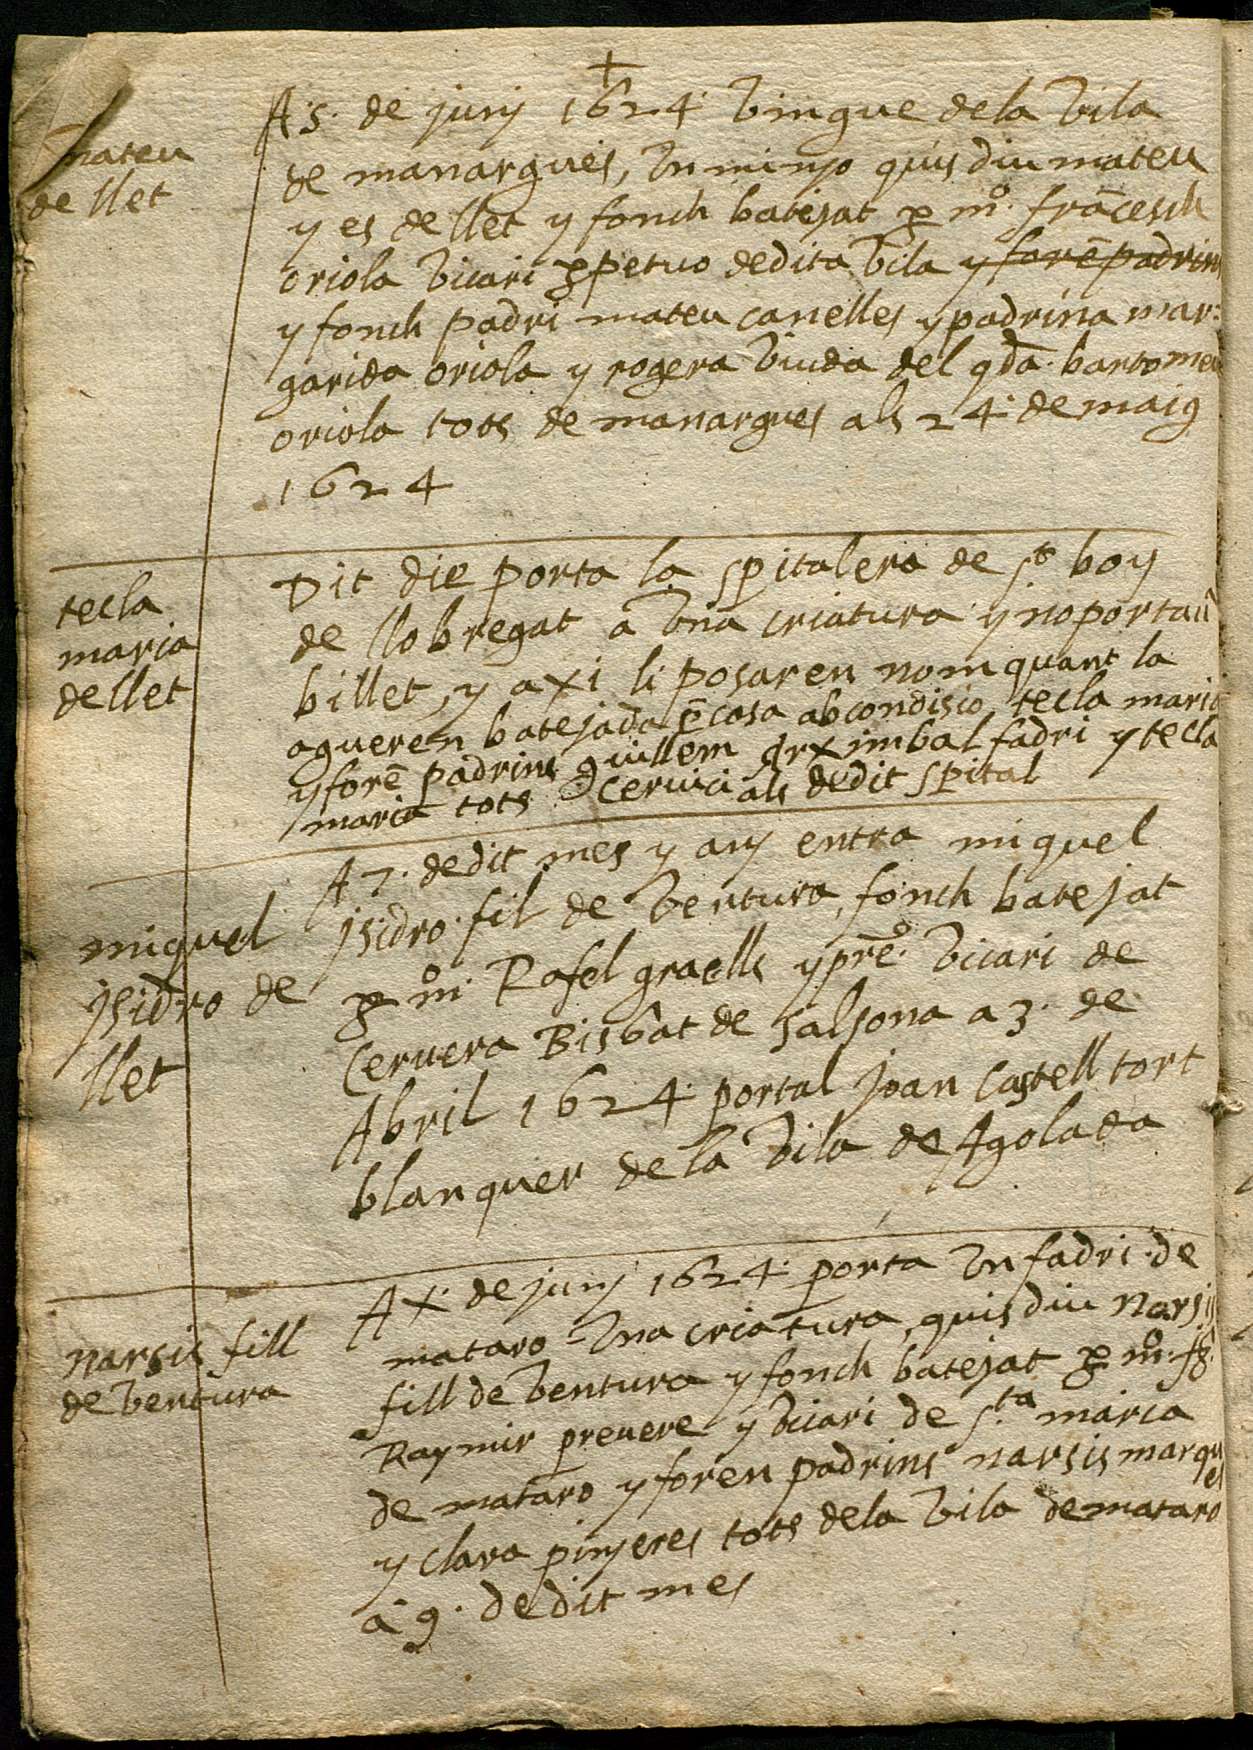 +
mateu
de llet
A 5. de juny 1624. vingue de la vila
de manargues, vn minyo quis diu mateu
y es de llet y fonch batejat p mº. frācesch
oriola vicari ppetuo de dita vila y forē padrins
y fonch padri mateu canelles y padrina mar:
garida oriola y rogera viuda del qdā. bartomeu
oriola tots de manargues als 24. de maig
1624
tecla
maria
de llet
Dit die porta la spitalera de St boy
de llobregat a vna criatura y no portaū
billet, y axi li posaren nom quant la
agueren batejada ē casa ab condisio, tecla maria
y forē padrins guillem fadri y tecla
maria tots cervicials de dit spital
miquel
jsidro de
llet
A 7. de dit mes y any entra miquel
jsidro. fil de ventura, fonch batejat
p mº. Rafel graells y prē. vicari de
Cervera Bisbat de salsona a 3. de
Abril 1624. portal joan Castelltort
blanquer de la vila de Agolada
narsis fill
de ventura
A X. de juny 1624. porta vn fadri. de
mataro vna criatura, quis diu narsis
fill de ventura y fonch batejat p mº. fr.
Raymir prevere y vicari de Sta maria
de mataro y foren padrins narsis marques
y clara pinyeres tots de la vila de mataro
a 9. de dit mes